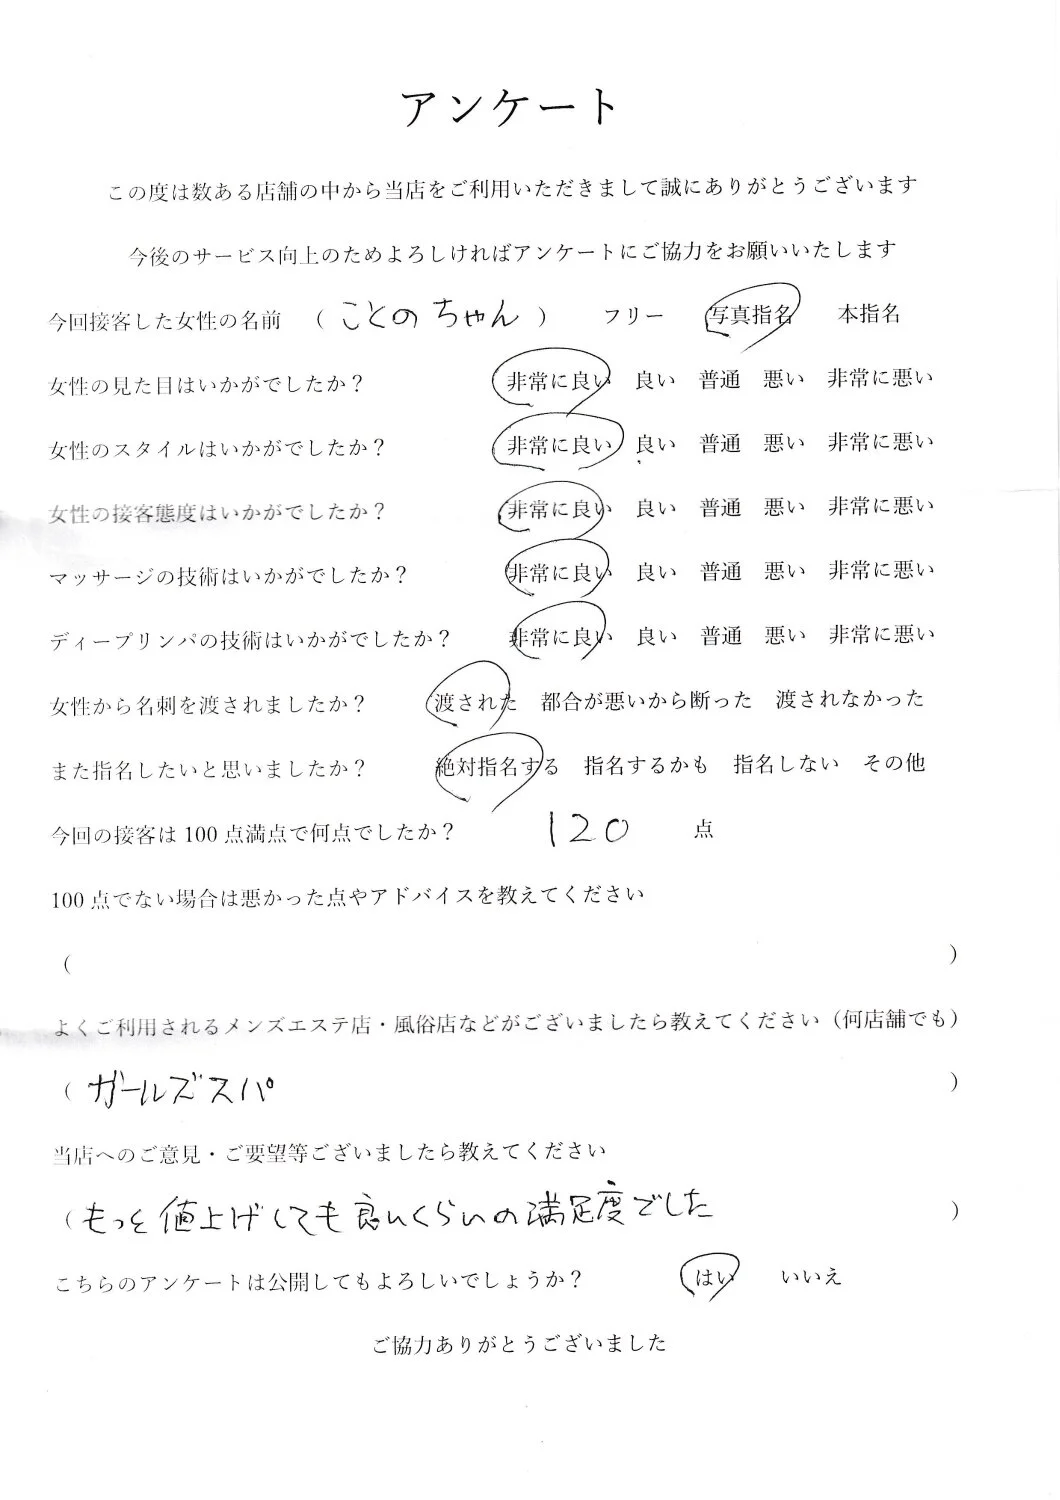 アンケート
この度は数ある店舗の中から当店をご利用いただきまして誠にありがとうございます
今後のサービス向上のためよろしければアンケートにご協力をお願いいたします
今回接客した女性の名前 （ ことの ちゃん ） フリー 写真指名 本指名
女性の見た目はいかがでしたか？ 非常に良い 良い 普通 悪い 非常に悪い
女性のスタイルはいかがでしたか？ 非常に良い 良い 普通 悪い 非常に悪い
女性の接客態度はいかがでしたか？ 非常に良い 良い 普通 悪い 非常に悪い
マッサージの技術はいかがでしたか？ 非常に良い 良い 普通 悪い 非常に悪い
ディープリンパの技術はいかがでしたか？ 非常に良い 良い 普通 悪い 非常に悪い
女性から名刺を渡されましたか？ 渡された 都合が悪いから断った 渡されなかった
また指名したいと思いましたか？ 絶対指名する 指名するかも 指名しない その他
今回の接客は 100 点満点で何点でしたか？ 120 点
100 点でない場合は悪かった点やアドバイスを教えてください
（ ）
よくご利用されるメンズエステ店・風俗店などがございましたら教えてください（何店舗でも）
（ ガールズスパ ）
当店へのご意見・ご要望等ございましたら教えてください
（ もっと値上げしても良いくらいの満足度でした ）
こちらのアンケートは公開してもよろしいでしょうか？ はい いいえ
ご協力ありがとうございました